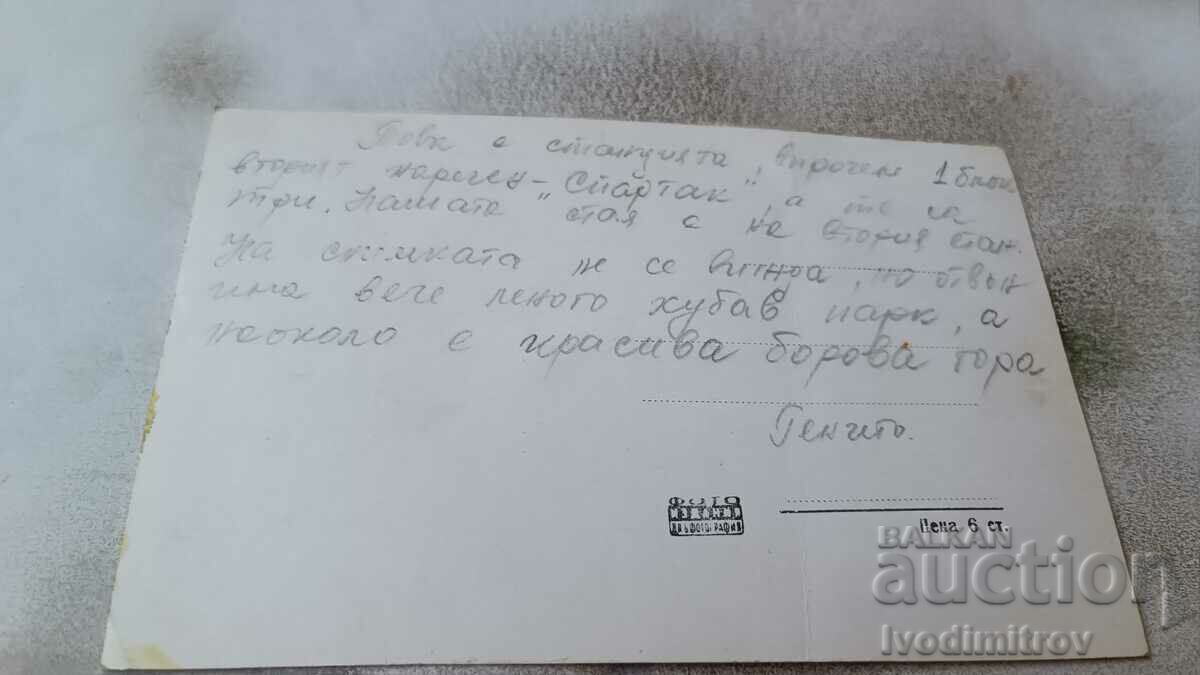 Това е станцията, впрочем 1 блок
вторият наречен - „Спартак", а те са
три. Нашата стая е на втория етаж.
На снимката не се вижда, но отвън
има вече много хубав парк, а
наоколо е красива борова гора
Генчито.
ФОТО
ДП ФОТОГРАФИЯ
Цена 6 ст.
BALKAN
auction
Ivodimitrov